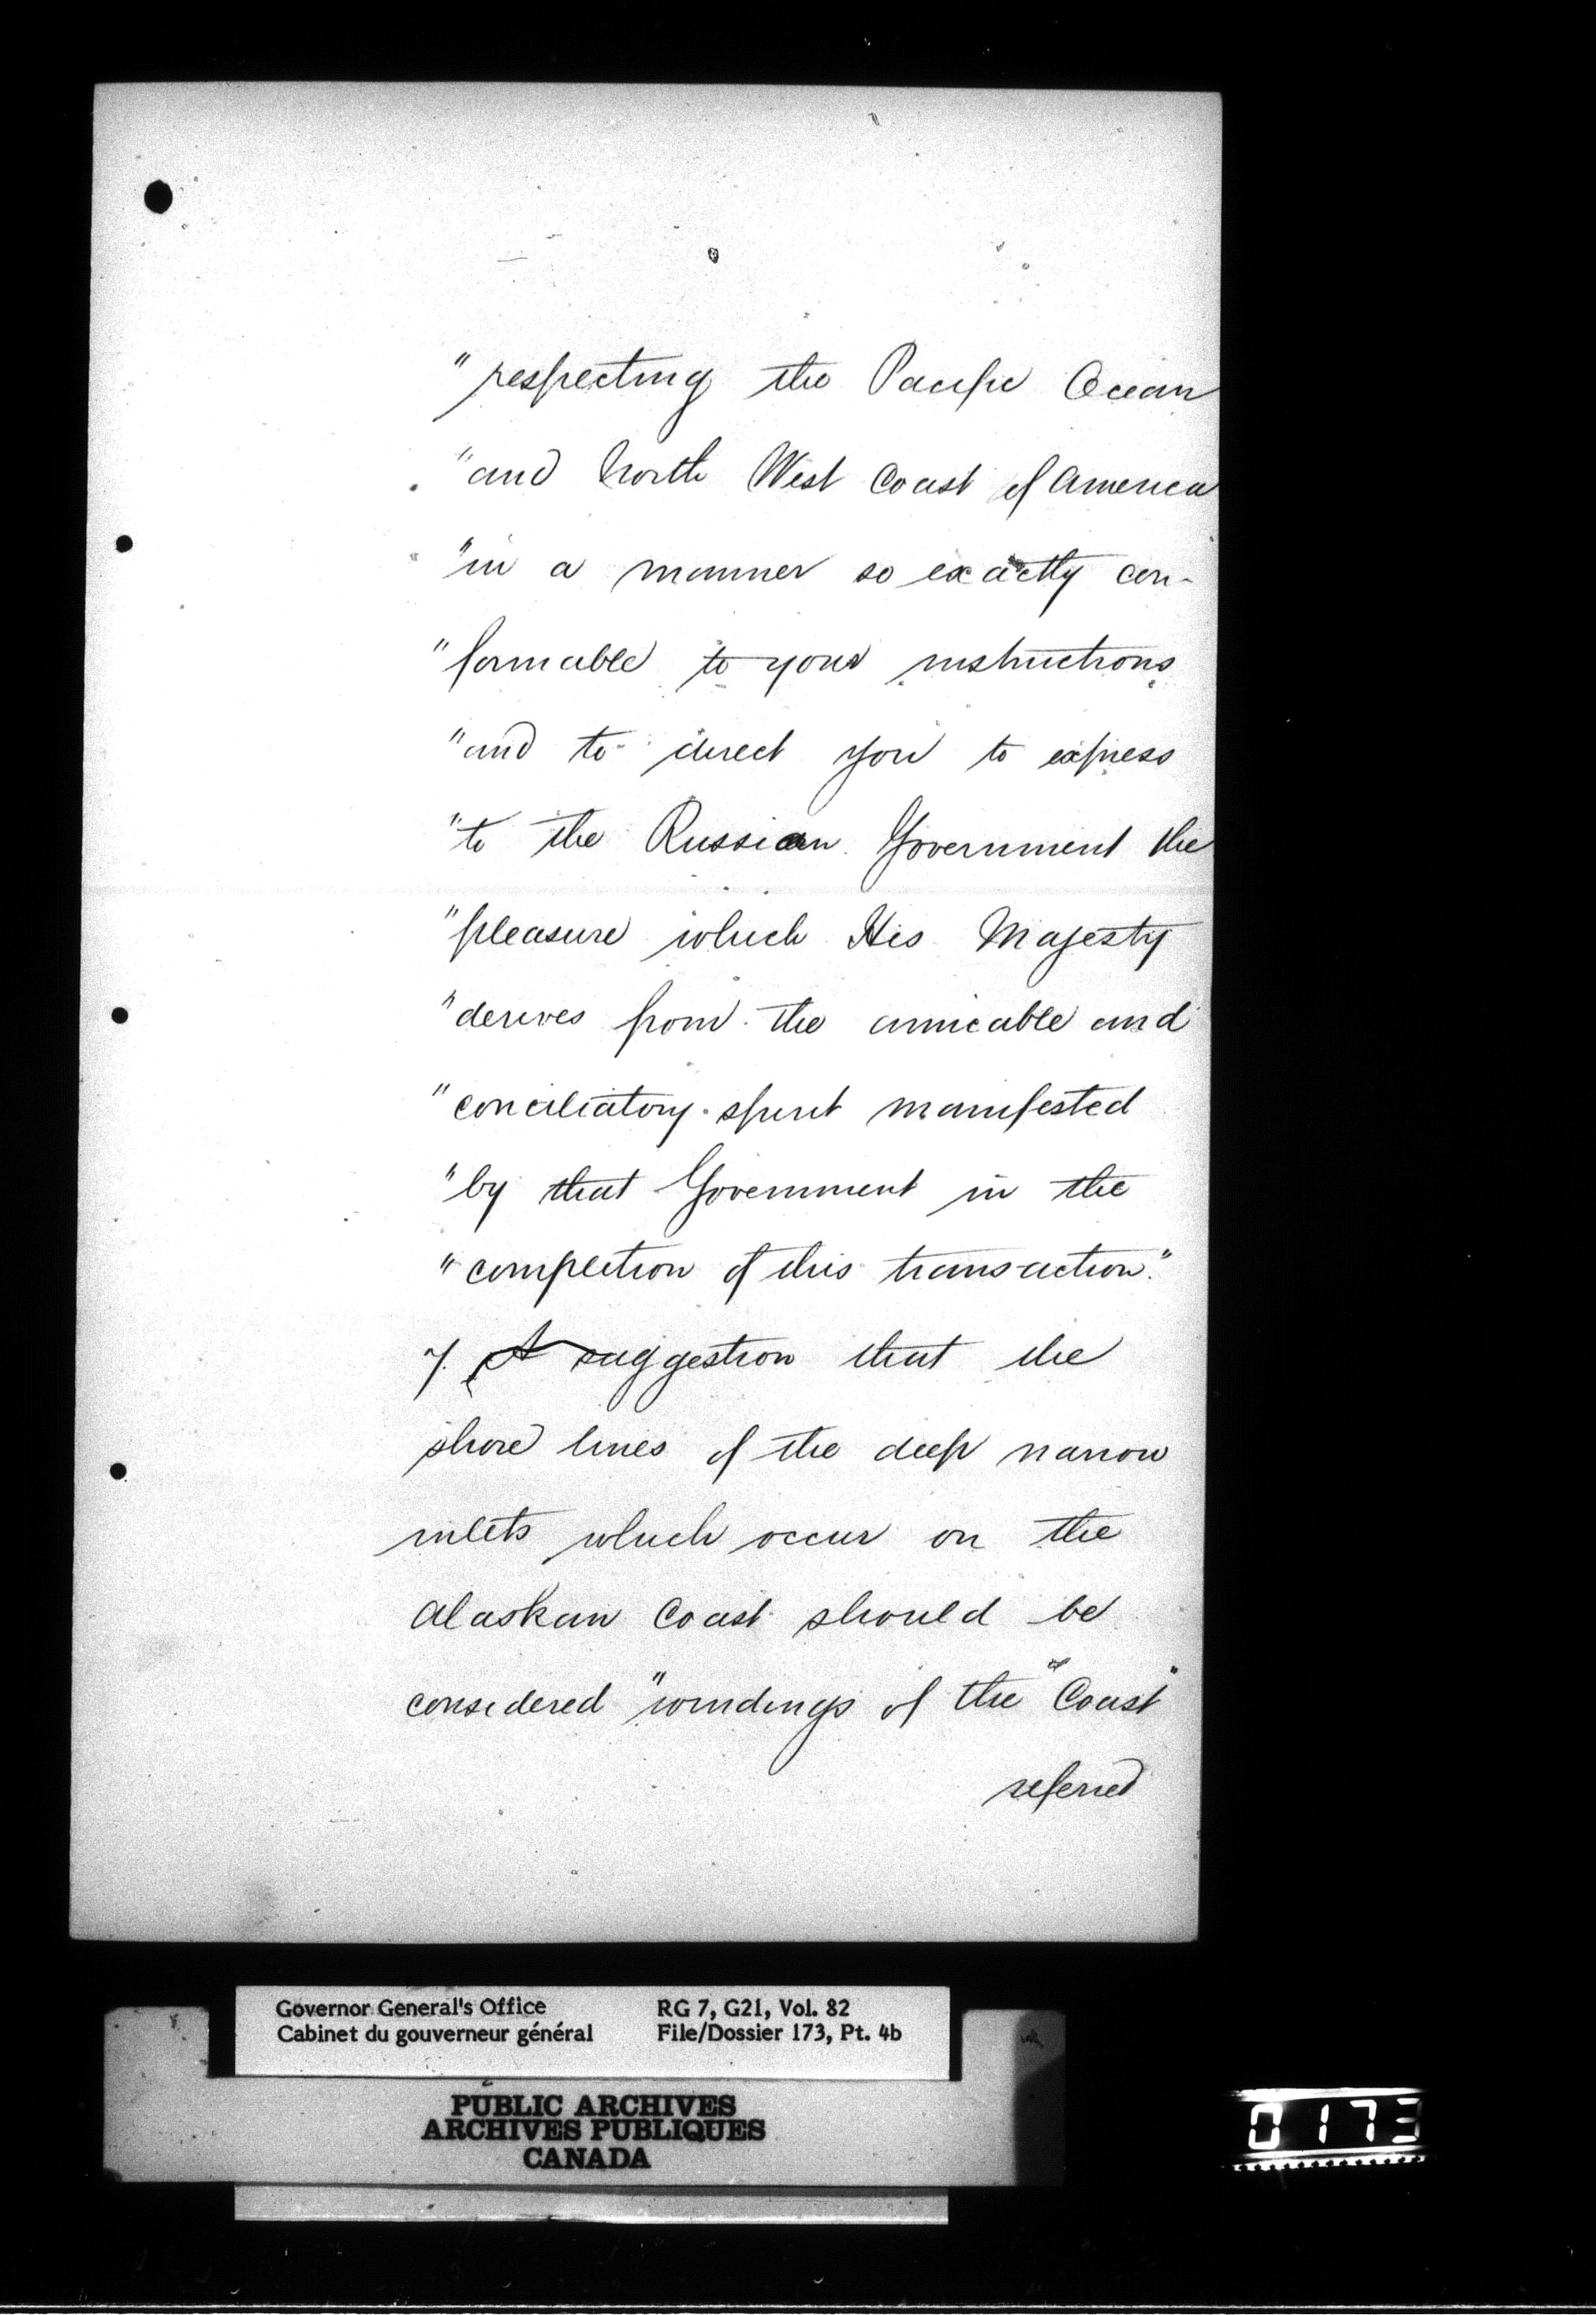 "respecting the Pacific Ocean
"and North West Coast of America
"in a manner so exactly con-
"formable to your instructions
"and to direct you to express
"to the Russian Government the
"pleasure which His Majesty
"derives from the amicable and
"conciliatory spirit manifested
"by that Government in the
"completion of this transaction."
7. A suggestion that the
shore lines of the deep narrow
inlets which occur on the
Alaskan Coast should be
considered "windings of the "Coast"
referred
Governor General's Office RG 7, G21, Vol. 82
Cabinet du gouverneur général File/Dossier 173, Pt. 4b
PUBLIC ARCHIVES
ARCHIVES PUBLIQUES
CANADA
0173